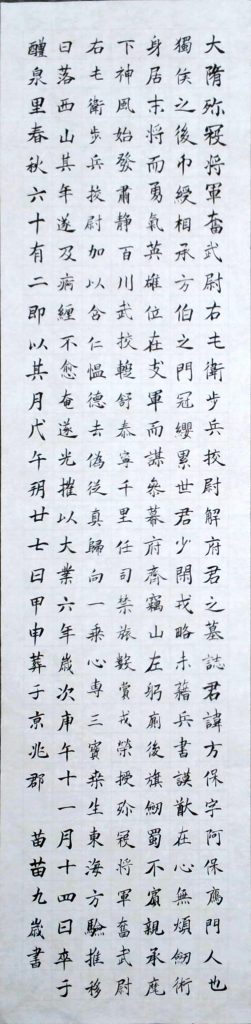 大隋殄寇將軍奮武尉右屯衛步兵挍尉解府君之墓誌君諱方保字阿保鴈門人也
獨侯之後巾綬相承方伯之門冠纓累世君少閑戎略未藉兵書謨猷在心無煩劒術
身居末將而勇氣英雄位在支軍而謀叅幕府齊竊山左躬廁後旗劒蜀不賓親承麾
下神風始發肅静百川武挍蹔舒泰寧千里任司禁旅數賞戎榮授殄寇將軍奮武尉
右屯衛步兵挍尉加以含仁愠德去偽從真歸向一乘心専三寳桒生東海方驗推移
日落西山其年遂及痾纏不愈奄遂光摧以大業六年歲次庚午十一月十四日卒于
醴泉里春秋六十有二即以其月戊午朔廿七日甲申葬于京兆郡 苗苗九歲書